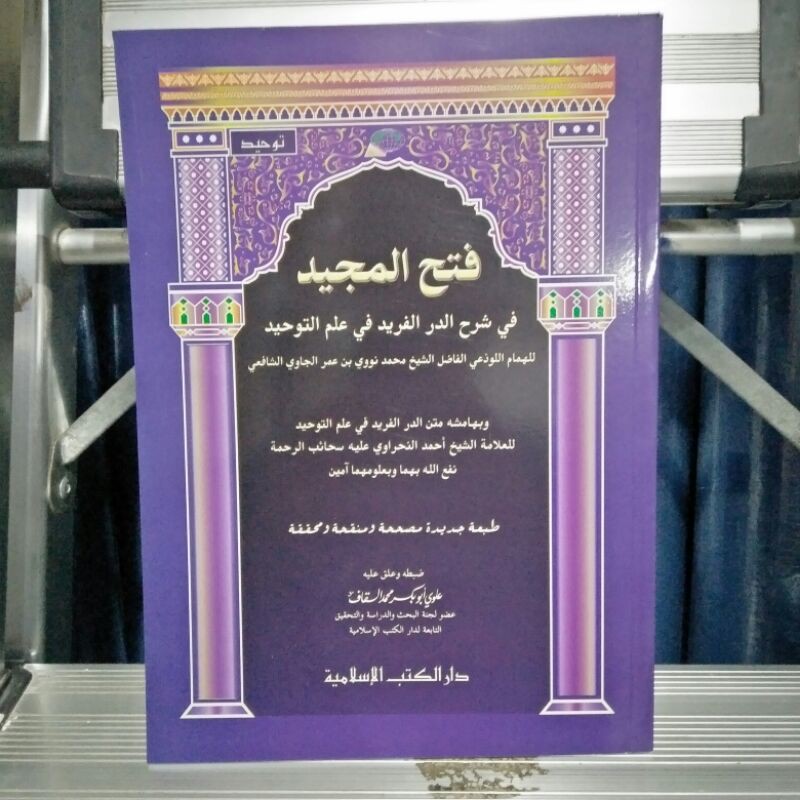 توحيد
فتح المجيد
في شرح الدر الفريد في علم التوحيد
للهمام اللوذعي الفاضل الشيخ محمد نووي بن عمر الجاوي الشافعي
وبهامشه متن الدر الفريد في علم التوحيد
للعلامة الشيخ أحمد النحراوي عليه سحائب الرحمة
نفع الله بهما وبعلومهما آمين
طبعة جديدة مصححة ومنقحة ومحققة
ضبطه وعلق عليه
علوي أبو بكر محمد السقاف
عضو لجنة البحث والدراسة والتحقيق
التابعة لدار الكتب الإسلامية
دار الكتب الإسلامية